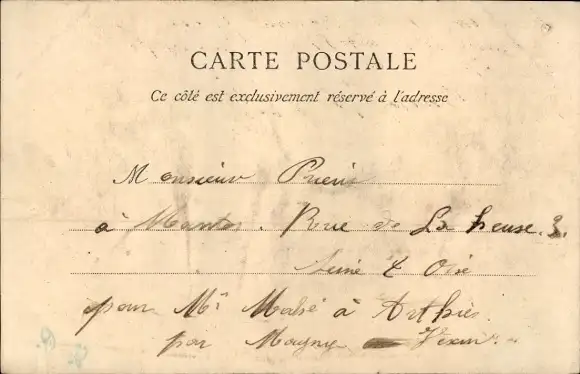 CARTE POSTALE
Ce côté est exclusivement réservé à l'adresse
Monsieur
à Mantes. Rue de La heuse. 3.
Seine & Oise
pour Mr à Arthies
par Magny Vexin